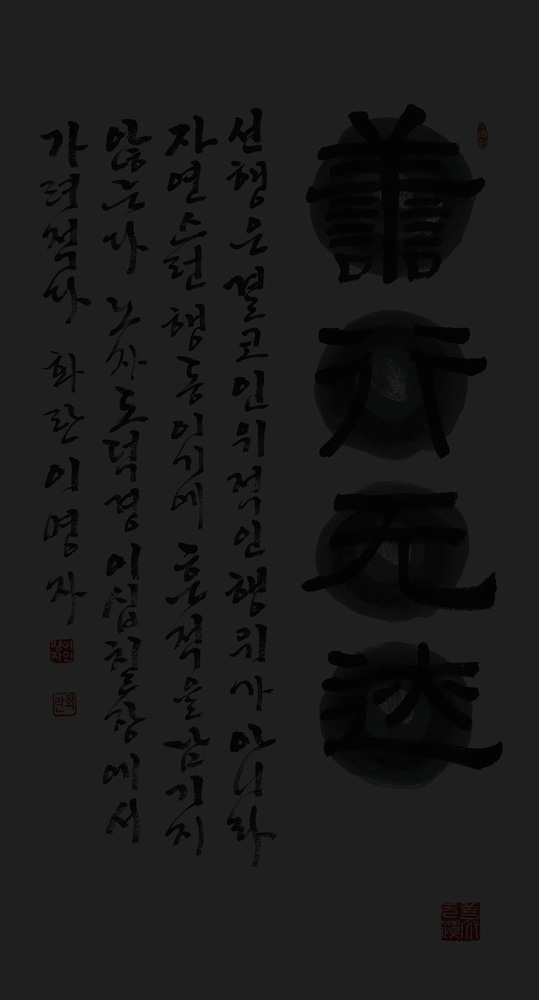 善行无迹
선행은 결코 인위적인 행위가 아니라
자연스런 행동이기에 흔적을 남기지
않는다 노자도덕경 이십칠장에서
가려적다 화란 이명자